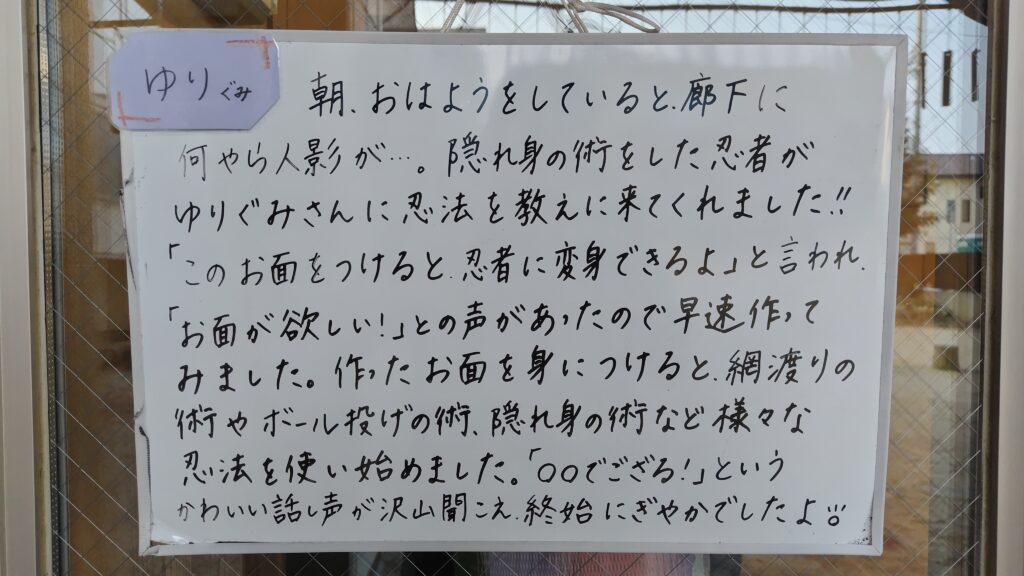 ゆりぐみ
朝、おはようをしていると、廊下に
何やら人影が…。隠れ身の術をした忍者が
ゆりぐみさんに忍法を教えに来てくれました!!
「このお面をつけると、忍者に変身できるよ」と言われ、
「お面が欲しい!」との声があったので早速作って
みました。作ったお面を身につけると、網渡りの
術やボール投げの術、隠れ身の術など様々な
忍法を使い始めました。「○○でござる!」という
かわいい話し声が沢山聞こえ、終始にぎやかでしたよ!!